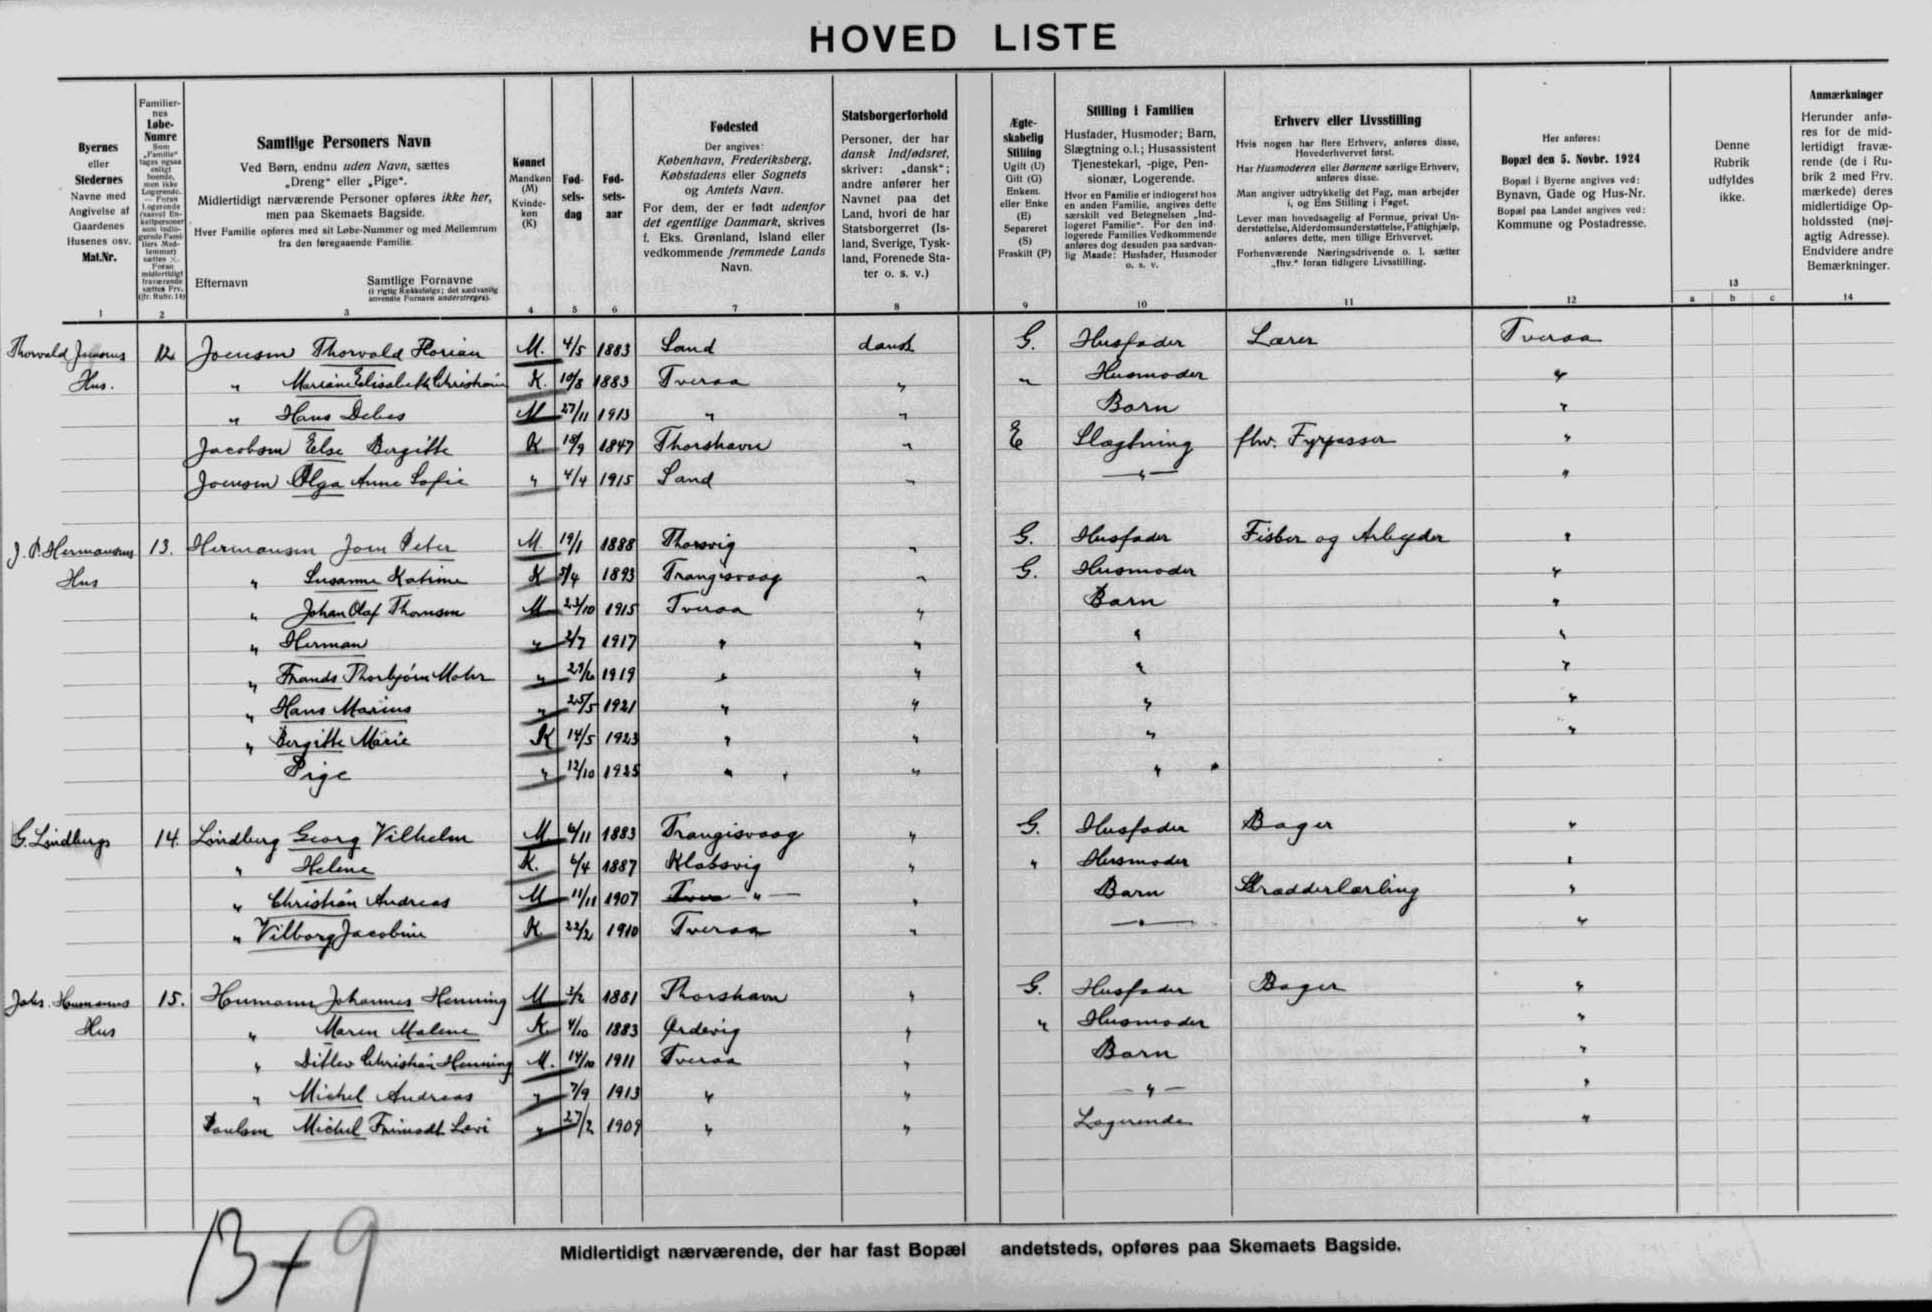 HOVED LISTE
Byernes eller Stedernes Navne med Angivelse af Gaardenes Husenes osv. Mat.Nr.
Familiernes Løbe-Numre
Samtlige Personers Navn
Ved Børn, endnu uden Navn, sættes
„Dreng" eller „Pige".
Midlertidigt nærværende Personer opføres ikke her,
men paa Skemaets Bagside.
Hver Familie opføres med sit Løbe-Nummer og med Mellemrum
fra den foregaaende Familie.
Efternavn Samtlige Fornavne
(i rigtig Rækkefølge; det sædvanlig
anvendte Fornavn understreges).
Kønnet Mandkøn (M) Kvindekøn (K)
Fødselsdag
Fødselsaar
Fødested
Der angives:
København, Frederiksberg,
Købstadens eller Sognets
og Amtets Navn.
For dem, der er født udenfor
det egentlige Danmark, skrives
f. Eks. Grønland, Island eller
vedkommende fremmede Lands
Navn.
Statsborgerforhold
Personer, der har
dansk Indfødsret,
skriver: „dansk";
andre anfører her
Navnet paa det
Land, hvori de har
Statsborgerret (Is-
land, Sverige, Tysk-
land, Forenede Sta-
ter o. s. v.)
Ægte-
skabelig
Stilling
Ugift (U)
Gift (G)
Enkem.
eller Enke
(E)
Separeret
(S)
Fraskilt (F)
Stilling i Familien
Husfader, Husmoder; Barn,
Slægtning o.l.; Husassistent
Tjenestekarl, -pige, Pen-
sionær, Logerende.
Hvor en Familie er indlogeret hos
en anden Familie, angives dette
særskilt ved Betegnelsen „Ind-
logeret Familie". For den ind-
logerede Families Vedkommende
anføres dog desuden paa sædvan-
lig Maade: Husfader, Husmoder
o. s. v.
Erhverv eller Livsstilling
Hvis nogen har flere Erhverv, anføres disse,
Hovederhvervet først.
Har Husmoderen eller Børnene særlige Erhverv,
anføres disse.
Man angiver udtrykkelig det Fag, man arbejder
i, og Ens Stilling i Faget.
Lever man hovedsagelig af Formue, privat Un-
derstøttelse, Alderdomsunderstøttelse, Fattighjælp,
anføres dette, men tillige Erhvervet.
Forhenværende Næringsdrivende o. l. sætter
„fhv." foran tidligere Livsstilling.
Her anføres:
Bopæl den 5. Novbr. 1924
Bopæl i Byerne angives ved:
Bynavn, Gade og Hus-Nr.
Bopæl paa Landet angives ved:
Kommune og Postadresse.
Denne
Rubrik
udfyldes
ikke.
Anmærkninger
Herunder anfø-
res for de mid-
lertidigt fravæ-
rende (de i Ru-
brik 2 med Frv.
mærkede) deres
midlertidige Op-
holdssted (nøj-
agtig Adresse).
Endvidere andre
Bemærkninger.
1 2 3 4 5 6 7 8 9 10 11 12 13 a b c 14
Thorvald Joensens 12. Joensen Thorvald Florian M. 4/5 1883 Sand dansk G. Husfader Lærer Tveraa
Hus. " Mariane Elisabeth Christiane K. 10/8 1883 Tveraa " " Husmoder "
" Hans Debes M 27/11 1913 " " Barn "
Jacobsen Else Bergitte K 18/9 1847 Thorshavn " E Slægtning fhv. Fyrpasser "
Joensen Olga Anne Sofie " 4/4 1915 Sand " " "
J. P. Hermansens 13. Hermansen Joen Peter M. 19/1 1888 Thorsvig " G. Husfader Fisker og Arbejder "
Hus " Susanne Katrine K 5/4 1893 Trangisvaag " G. Husmoder "
" Johan Olaf Thomsen M 23/10 1915 Tveraa " Barn "
" Herman " 2/7 1917 " " " "
" Frands Thorbjørn Mohr " 23/6 1919 " " " "
" Hans Marius " 25/5 1921 " " " "
" Bergitte Marie K 14/5 1923 " " " "
Pige " 12/10 1925 " " "
G. Lindbergs 14. Lindberg Georg Vilhelm M 6/11 1883 Trangisvaag " G. Husfader Bager "
" Helene K. 6/4 1887 Klaksvig " " Husmoder "
" Christian Andreas M 11/11 1907 " " Barn Skrædderlærling "
" Vilborg Jacobine K 22/2 1910 Tveraa " " "
Johs. Heumanns 15. Heumann Johannes Henning M 3/2 1881 Thorshavn " G. Husfader Bager "
Hus " Maren Malene K 4/10 1883 Ørdevig " " Husmoder "
" Ditlev Christian Henning M. 14/10 1911 Tveraa " Barn "
" Michel Andreas " 7/9 1913 " " " "
Poulsen Michel Frimodt Levi " 27/2 1909 " " Logerende "
13 + 9
Midlertidigt nærværende, der har fast Bopæl andetsteds, opføres paa Skemaets Bagside.